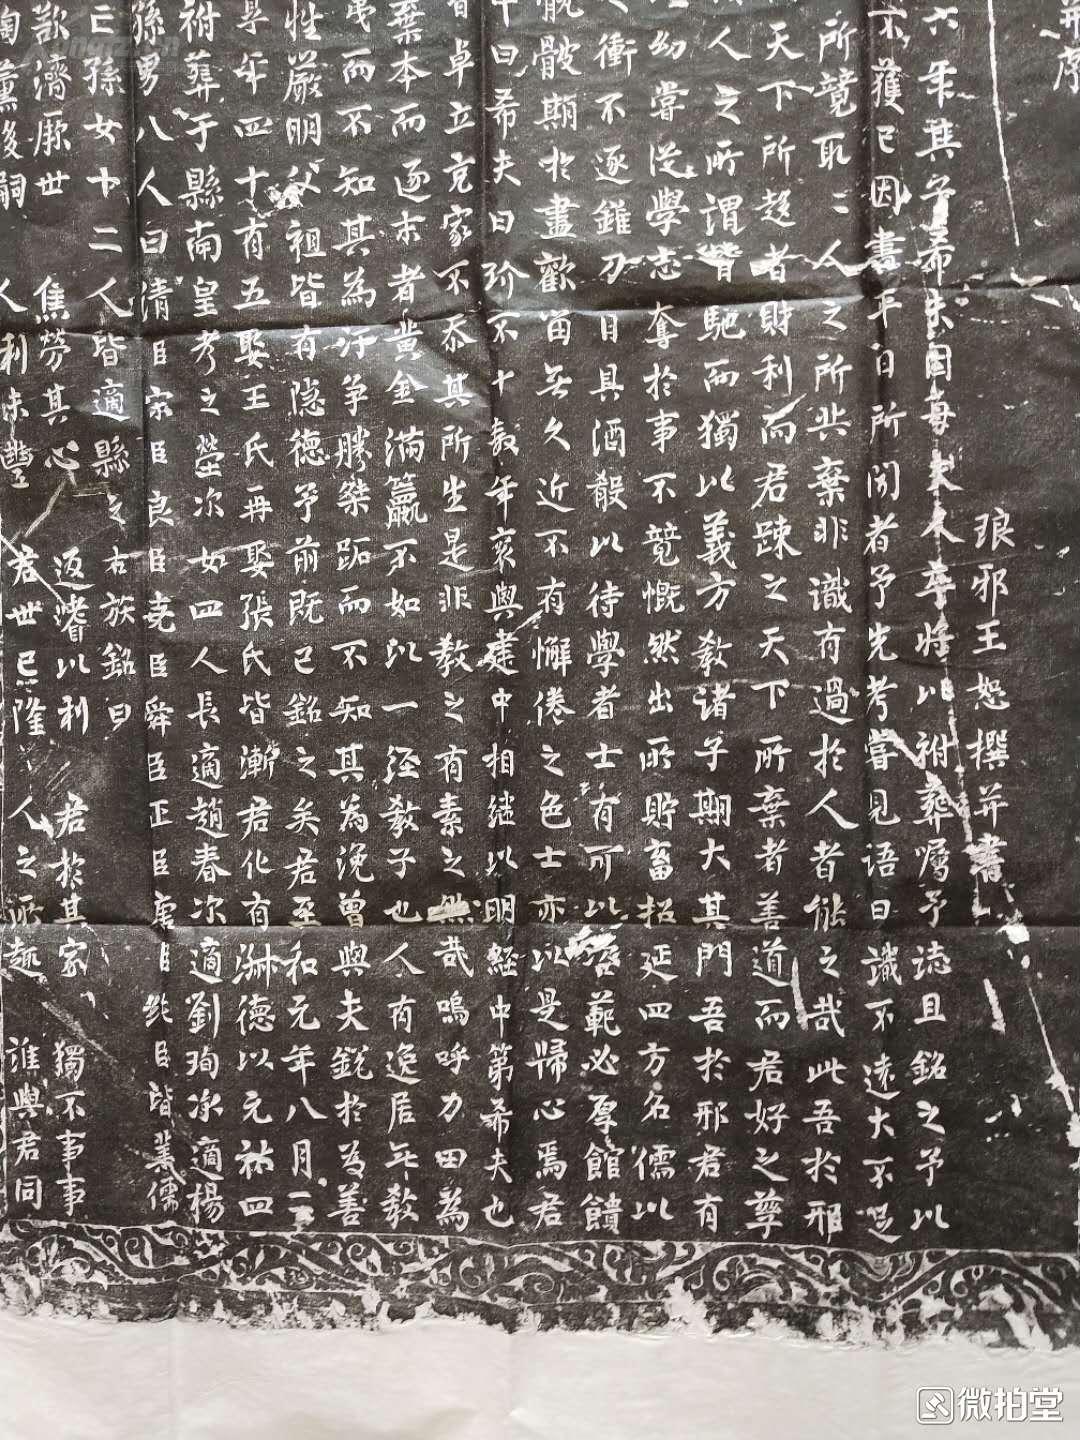 并序
琅邪王恕撰并書
六年其子希夫因母夫人李將以祔葬囑予誌且銘之予以
不獲已因書平日所聞者予先考嘗見語曰識不遠大不足
所競取二人之所共棄非識有過於人者能之哉此吾於邢
天下所趍者財利而君踈之天下所棄者善道而君好之孳
人之所謂皆馳而獨以義方教諸子期大其門吾於邢君有
幼嘗従學志奪於事不競慨然出所貯畜招延四方名儒以
衝不逐錐刀目具酒殽以待學者士有可以啓範必厚館饋
骫骳顯於畫歡畱無久近不有懈倦之色士亦以是歸心焉君
中曰希夫曰玠不十数年衮與建中相継以明經中第希夫也
卓立克家不忝其所生是非教之有素之然哉嗚呼力田為
棄本而逐末者黄金滿籯不如以一経教子也人有逸居無教
而不知其為汙争勝桀跖而不知其為浼曽與夫銳於為善
性嚴明父祖皆有隠德予前既已銘之矣君至和元年八月二
享年四十有五娶王氏再娶張氏皆漸君化有淋德以元祐四
祔葬于縣南皇考之塋次女四人長適趙春次適劉珣次適楊
孫男八人曰倩臣宗臣良臣堯臣舜臣正臣唐臣純臣皆業儒
亡孫女十二人皆適縣之右族銘曰
歆濟厥世 焦勞其心 返瀆以利 君於其家 獨不事事
陶薫後嗣 人利味豐 君世已隆 人之所趣 誰與君同
微拍堂